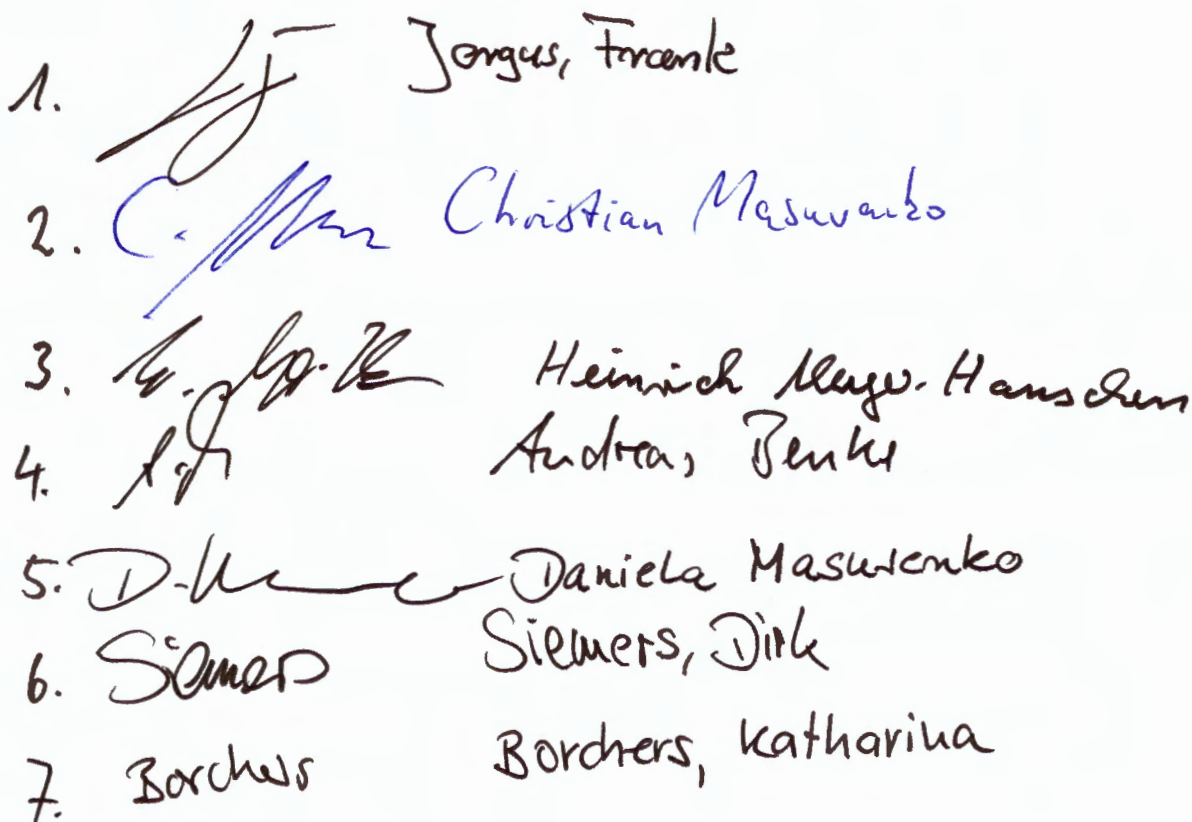 1. Jorgus, Frank
2. Christian Masurenko
3. Heinrich Meyer-Hanschen
4. Andreas Benke
5. Daniela Masurenko
6. Siemers Siemers, Dirk
7. Borchers Borchers, Katharina